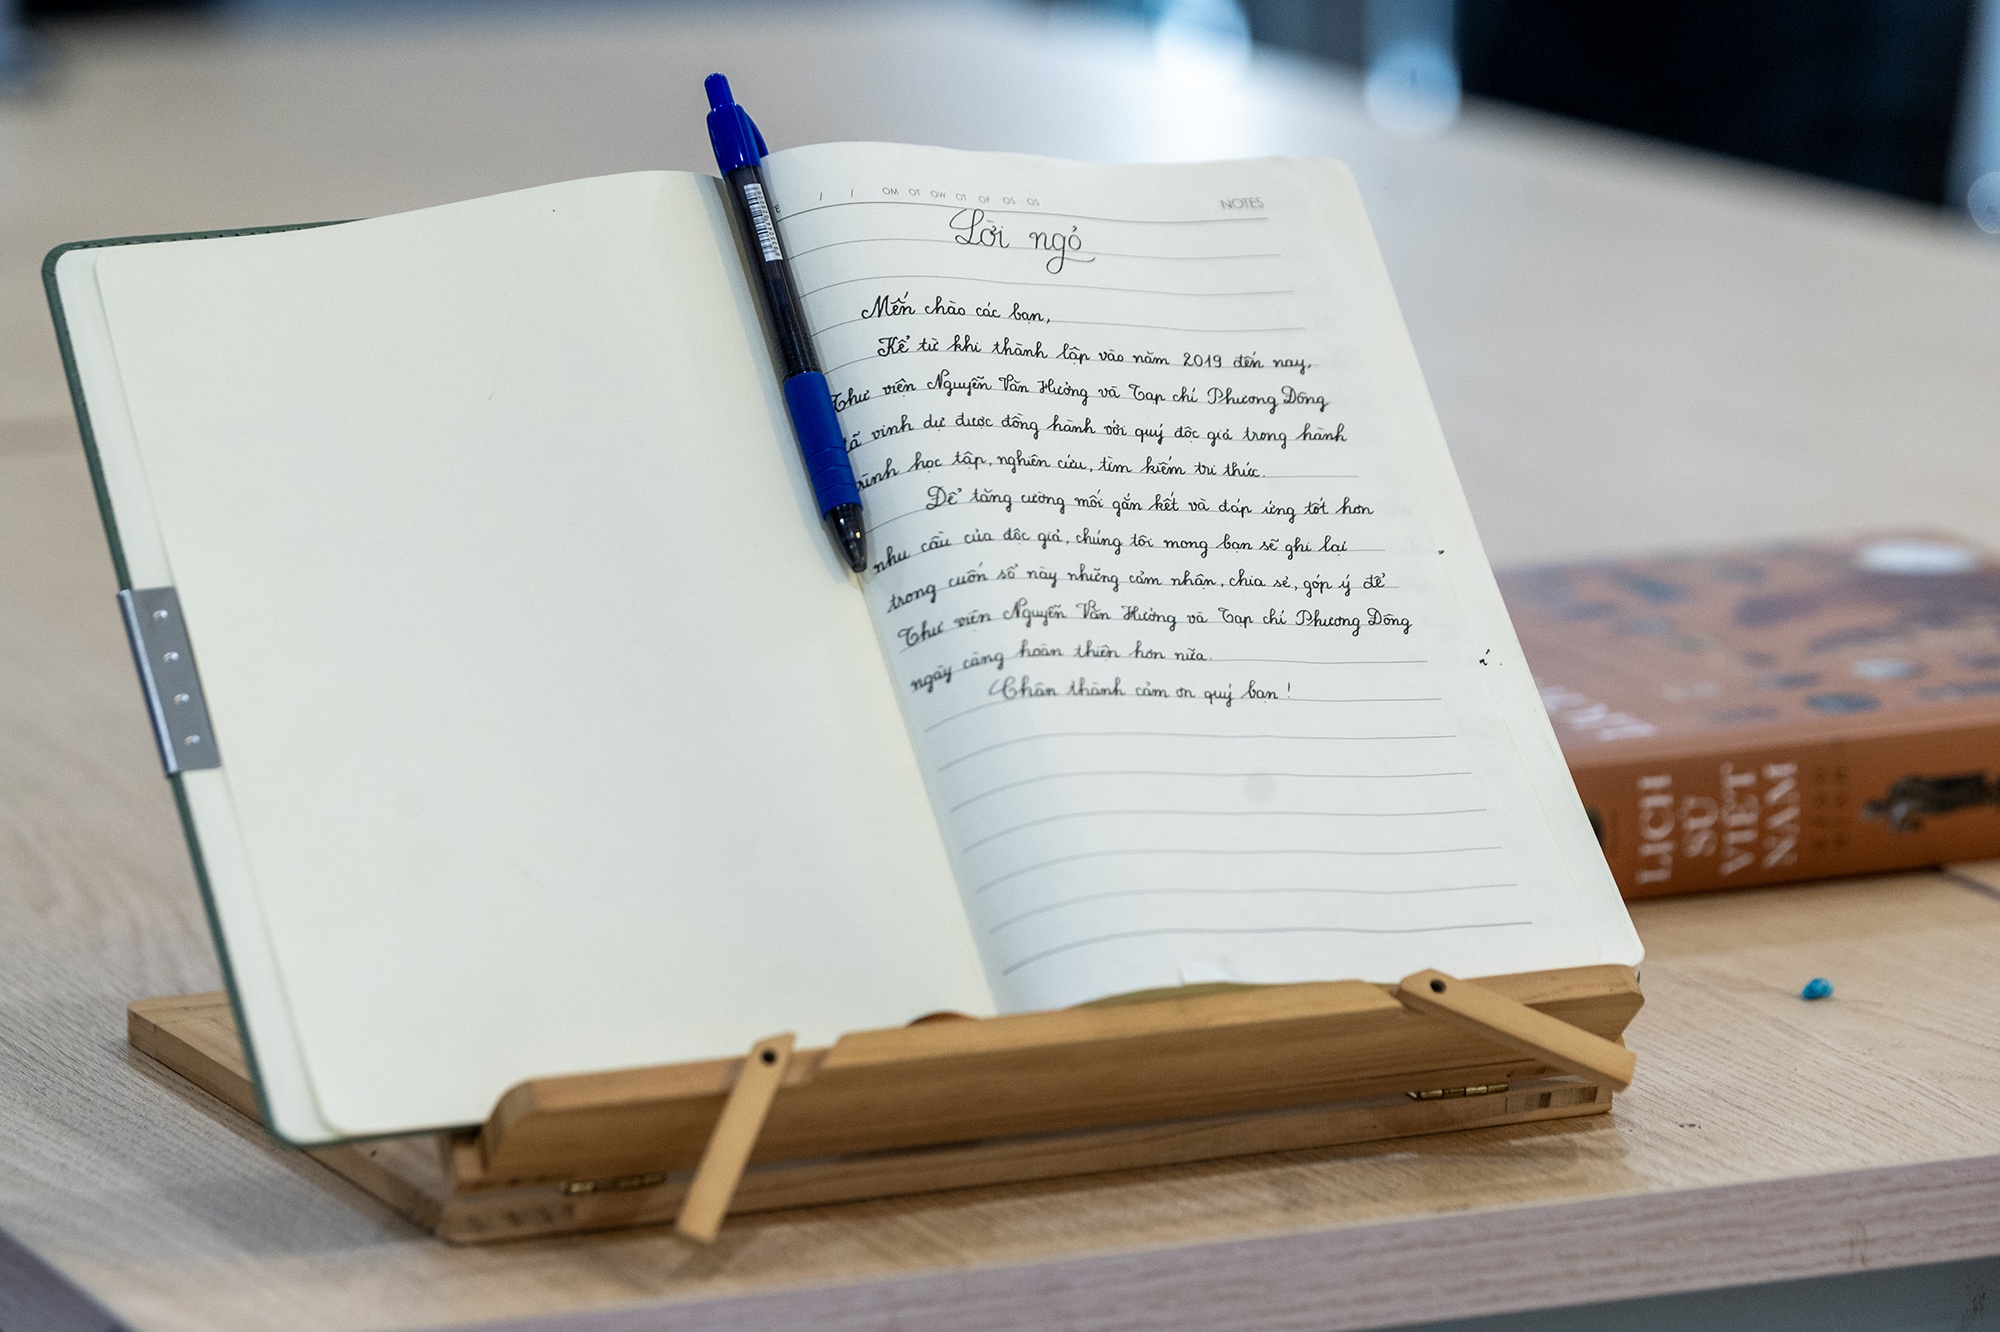 OM OT OW OT OF OS OS
NOTES
Lời ngỏ
Mến chào các bạn,
Kể từ khi thành lập vào năm 2019 đến nay,
Thư viện Nguyễn Văn Hưởng và Tạp chí Phương Đông
đã vinh dự được đồng hành với quý độc giả trong hành
trình học tập, nghiên cứu, tìm kiếm tri thức.
Để tăng cường mối gắn kết và đáp ứng tốt hơn
nhu cầu của độc giả, chúng tôi mong bạn sẽ ghi lại
trong cuốn sổ này những cảm nhận, chia sẻ, góp ý để
Thư viện Nguyễn Văn Hưởng và Tạp chí Phương Đông
ngày càng hoàn thiện hơn nữa.
Chân thành cảm ơn quý bạn!
LỊCH
SỬ
VIỆT
NAM